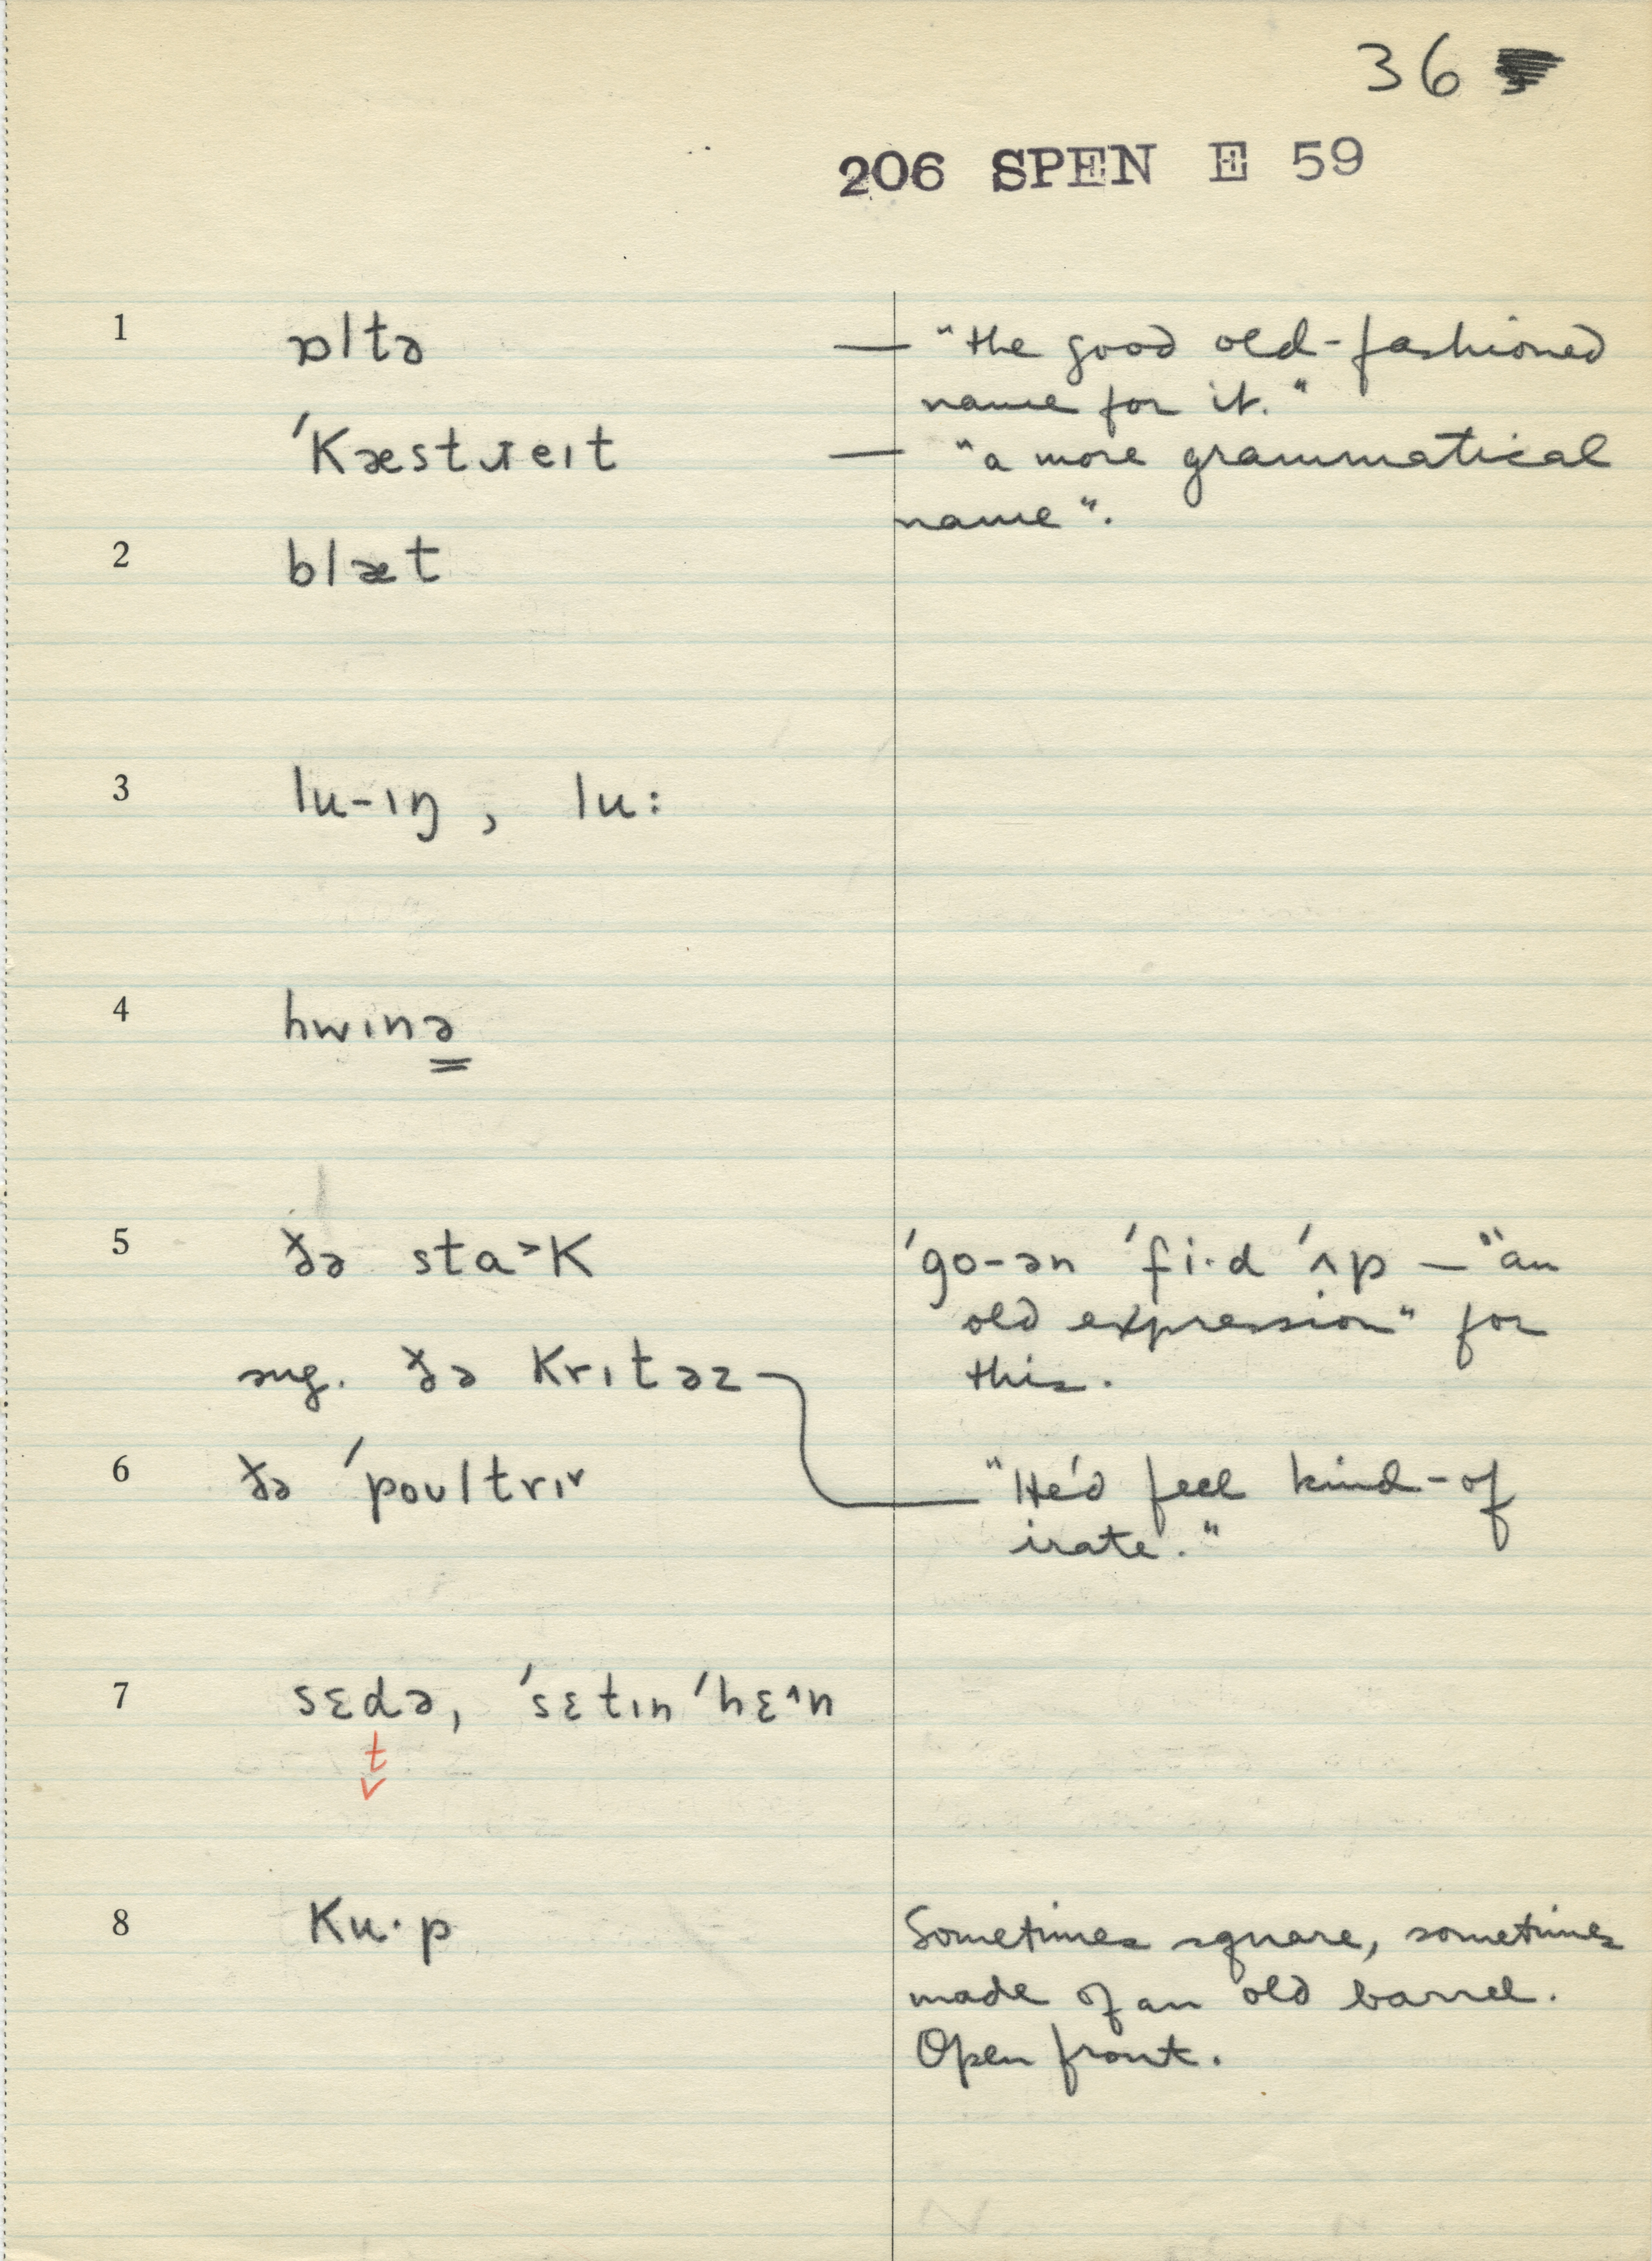 36
206 SPEN E 59
1 ɒltə — "the good old-fashioned
name for it."
ˈkæstɹeɪt — "a more grammatical
name".
2 blæt
3 lu-ɪŋ, lu:
4 hwɪnə
5 ðə sta˃k ˈgo-ən ˈfi·d ˈʌp — "an
old expression" for
sug. ðə krɪtəz this.
6 ðə ˈpoʊltrɪ˅ "He'd feel kind-of
irate."
7 sɛdə, ˈsɛtɪn ˈhɛ˄n
t
8 ku·p Sometimes square, sometimes
made of an old barrel.
Open front.